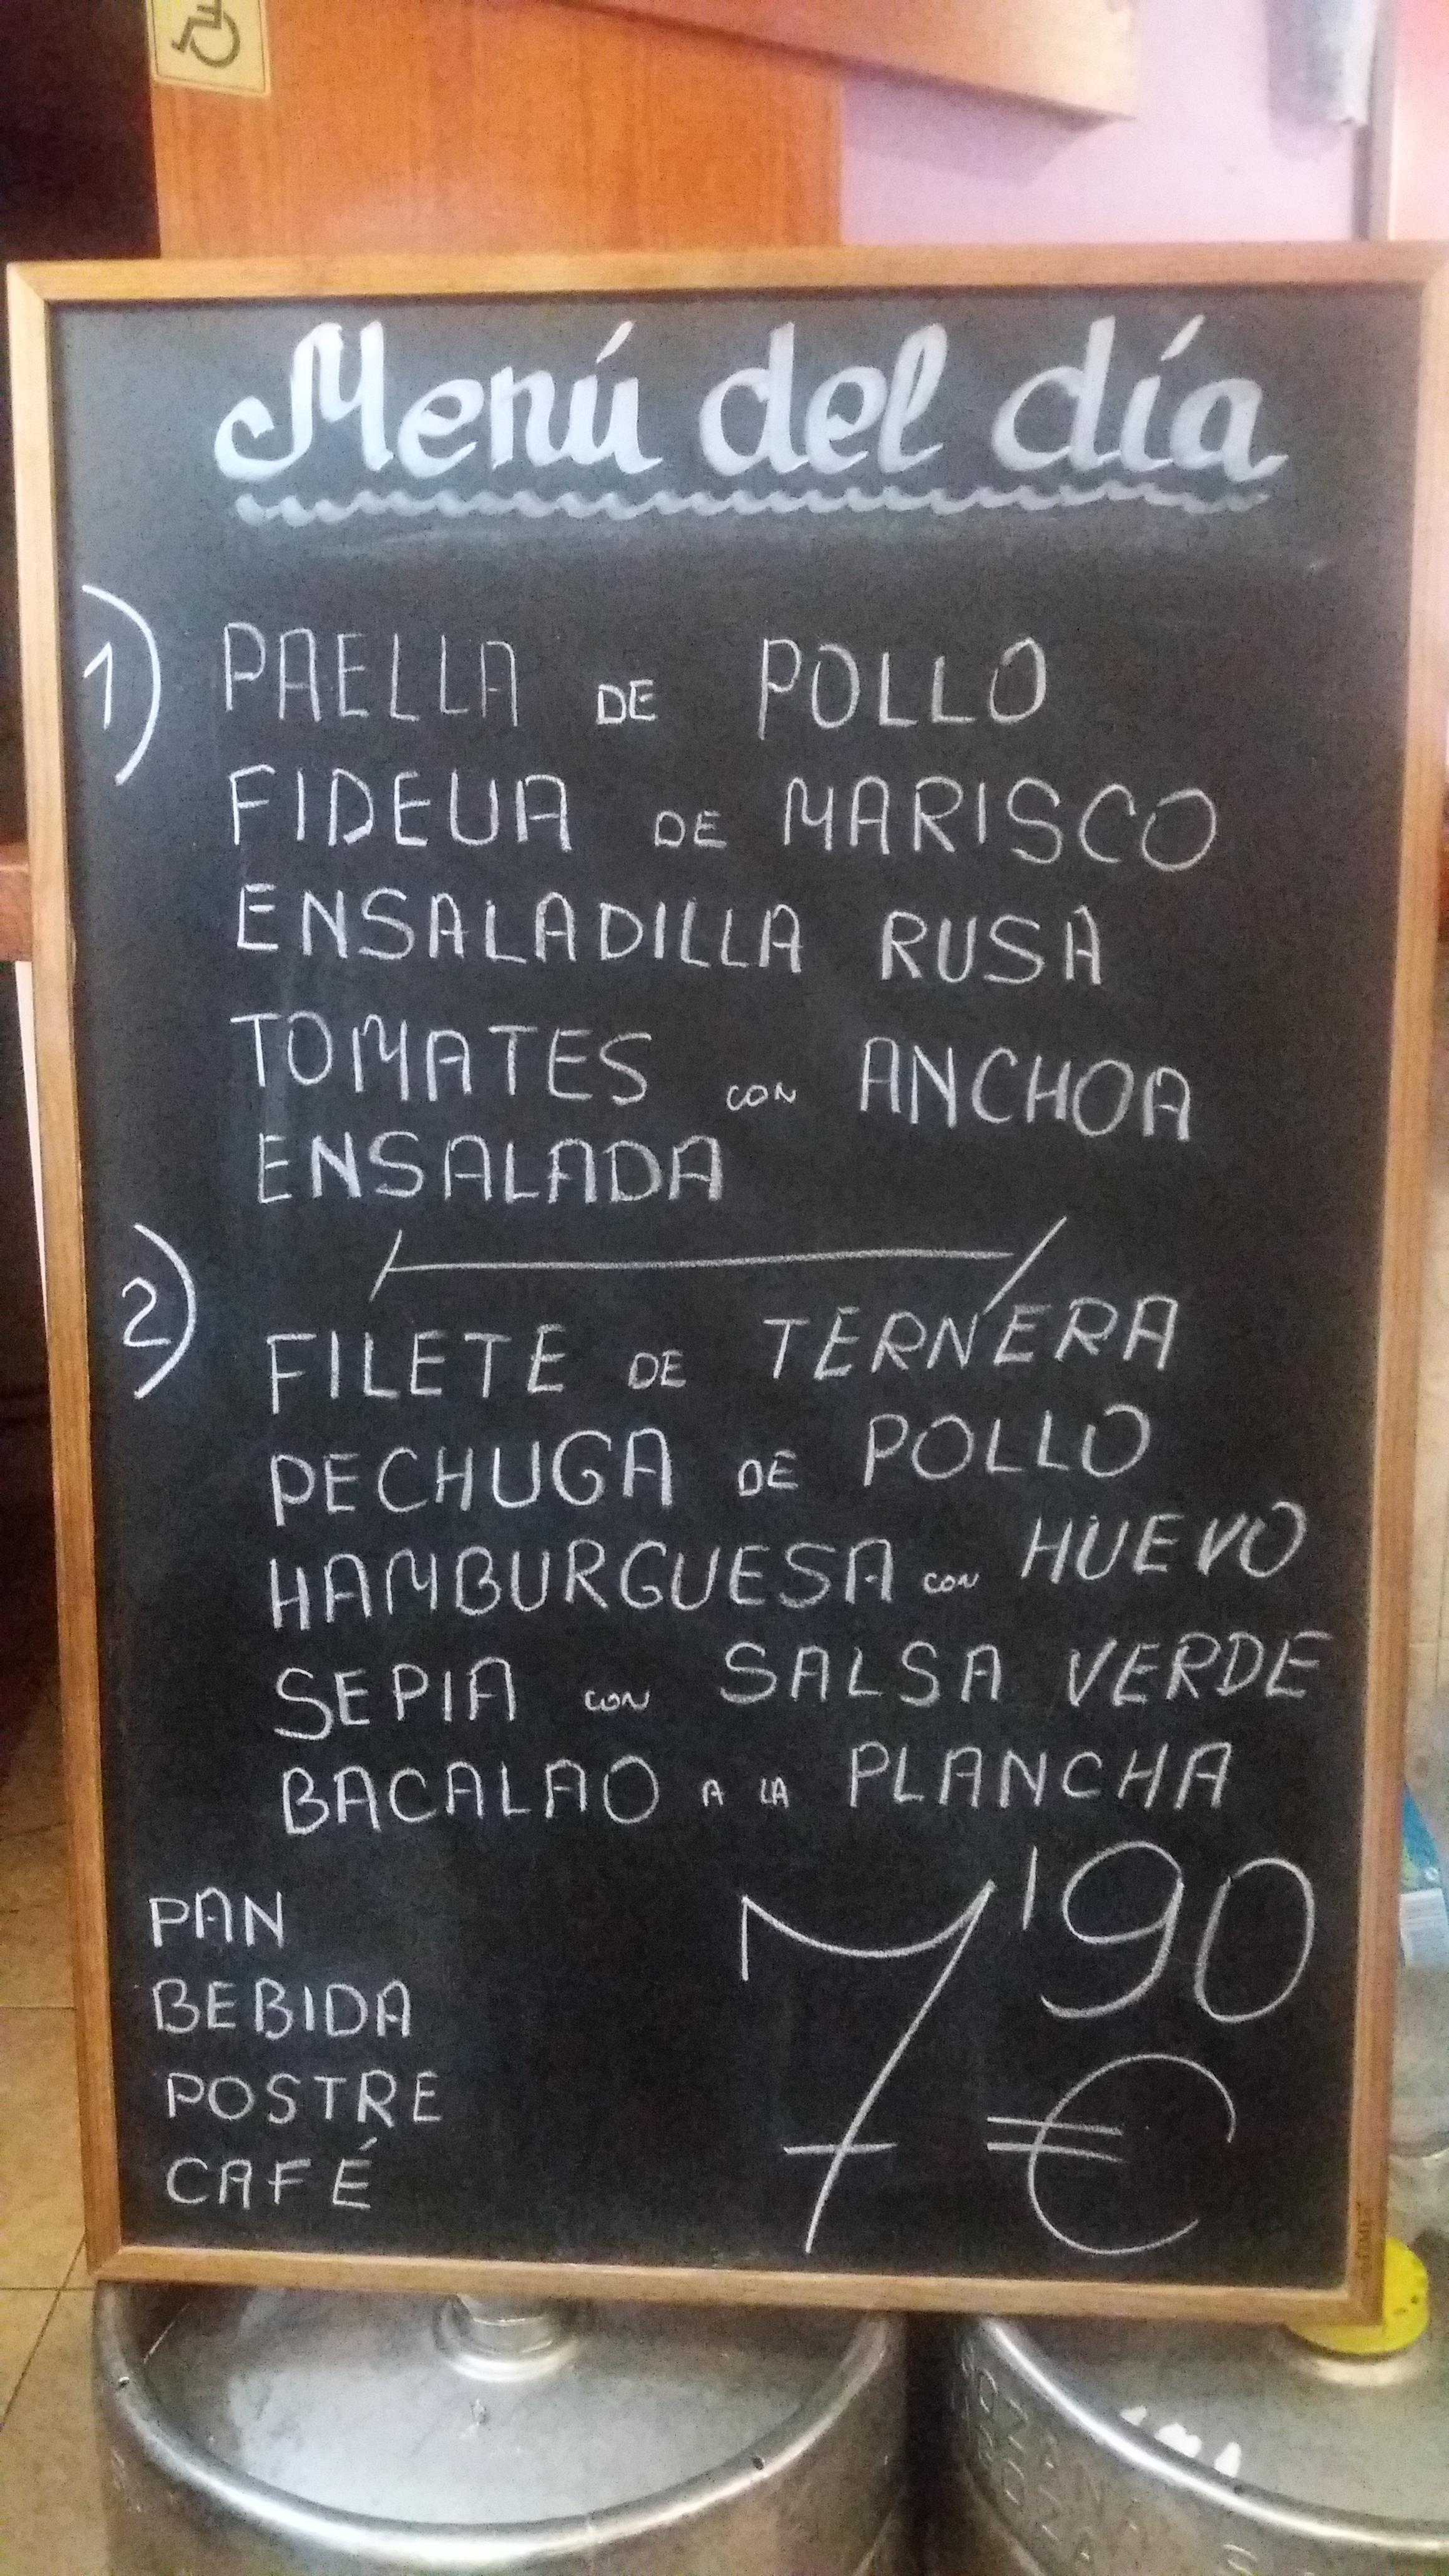 Menú del día
1) PAELLA DE POLLO
FIDEUA DE MARISCO
ENSALADILLA RUSA
TOMATES CON ANCHOA
ENSALADA
2) FILETE DE TERNERA
PECHUGA DE POLLO
HAMBURGUESA CON HUEVO
SEPIA CON SALSA VERDE
BACALAO A LA PLANCHA
PAN
BEBIDA
POSTRE
CAFÉ
7'90
€